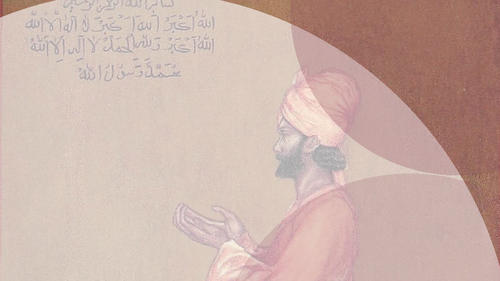 الله أكبر الله أكبر لا إله إلا الله
الله أكبر ولله الحمد لا إله إلا الله
محمد رسول الله